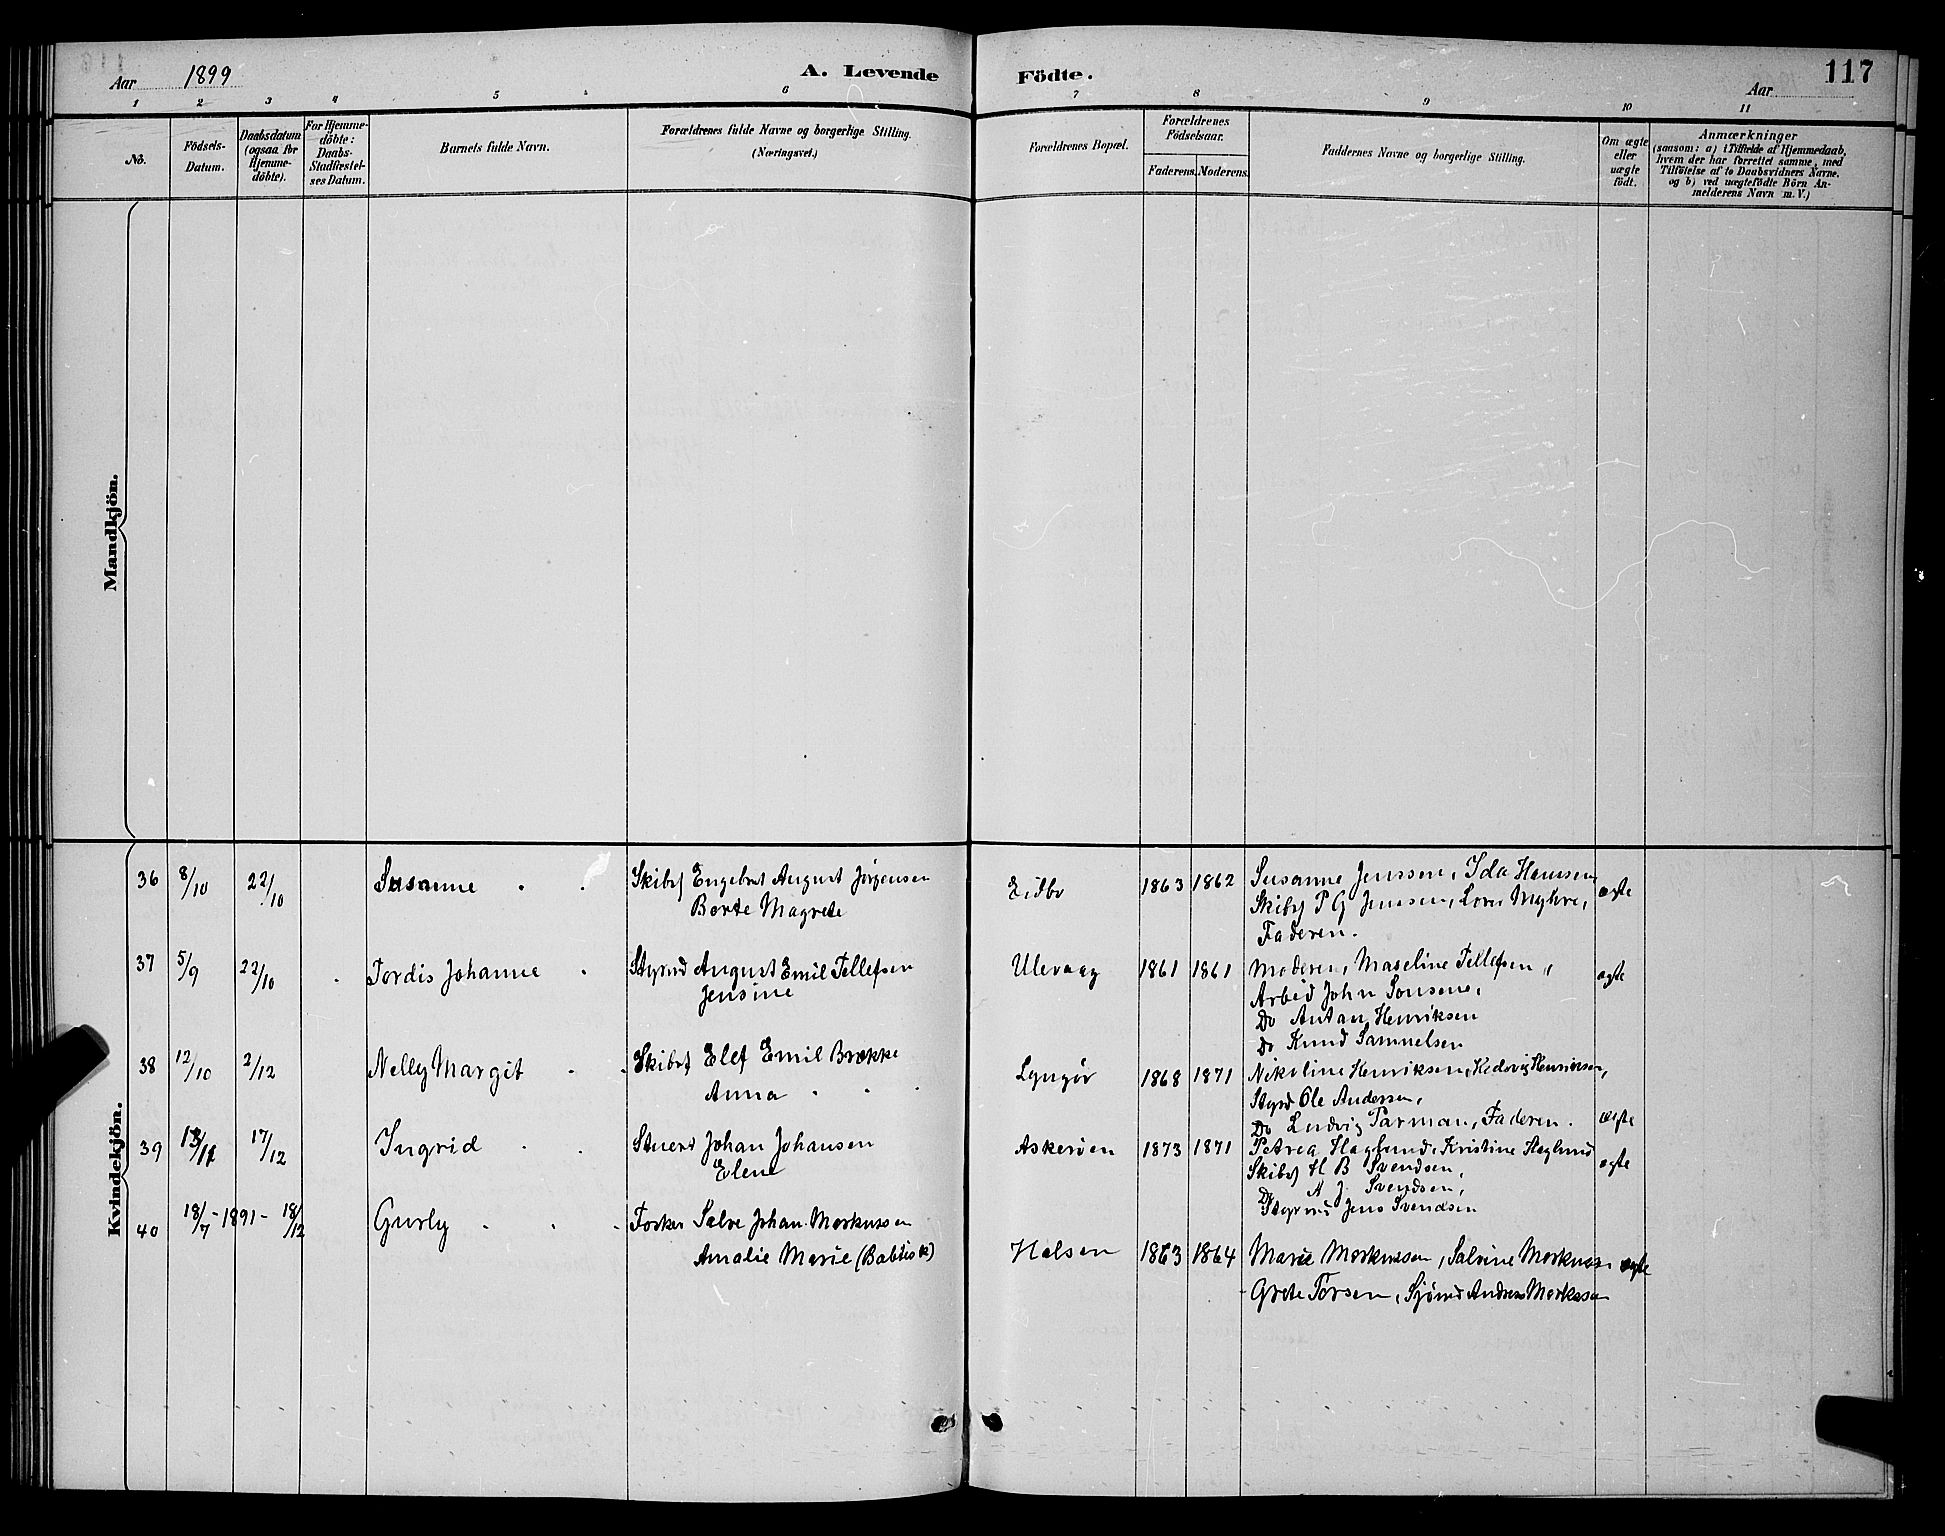 Aar 1899 A. Levende Födte. Aar 117
1 2 3 4 5 6 7 8 9 10 11
No.
Födsels-Datum.
Daabsdatum (ogsaa for Hjemme-döbte).
For Hjemme-döbte: Daabs-Stadfæstel-ses Datum.
Barnets fulde Navn.
Forældrenes fulde Navne og borgerlige Stilling. (Næringsvei.)
Forældrenes Bopæl.
Forældrenes Födselsaar.
Faderens. Moderens.
Faddernes Navne og borgerlige Stilling.
Om ægte eller uægte födt.
Anmærkninger
(saasom: a) i Tilfælde af Hjemmedaab,
hvem der har forrettet samme, med
Tilföielse af to Daabsvidners Navne,
og b) ved uægtefödte Börn An-
melderens Navn m. V.)
Mandkjön.
Kvindekjön.
36 8/10 22/10 Susanne Skibsf Engebret August Jørgensen Eidbo 1863 1862 Susanne Jenssen, Ida Hansen ægte
Berte Magrete Skibsf P G Jenssen, Myhre,
Faderen.
37 5/9 22/10 Tordis Johanne Styrmd August Emil Tellefsen Ulevaag 1861 1861 Moderen, Maseline Tellefsen, ægte
Jensine Arbeid John
Do Antan Henriksen
Do Knud Samuelsen
38 12/10 2/12 Nelly Margit Skibsf Elef Emil Brække Lyngør 1868 1871 Nikoline Henriksen, Hedevig Henriksen,
Anna Styrd Ole Andersen,
Do Ludvig Parman, Faderen. ægte
39 13/11 17/12 Ingrid Stuert Johan Johansen Askerøen 1873 1871 Petrea Haglund, Kristine Haglund ægte
Elene Skibsf H B Svendsen,
Do A J Svendsen,
Styrmd Jens Svendsen
40 18/7 - 1891 - 18/12 Gurly Fosker Salve Johan Markussen
Amalie Marie (Babtist) Holsen 1863 1864 Marie Markussen, Salvine Markussen ægte
Grete Torsen, Sjømd Andreas Markussen